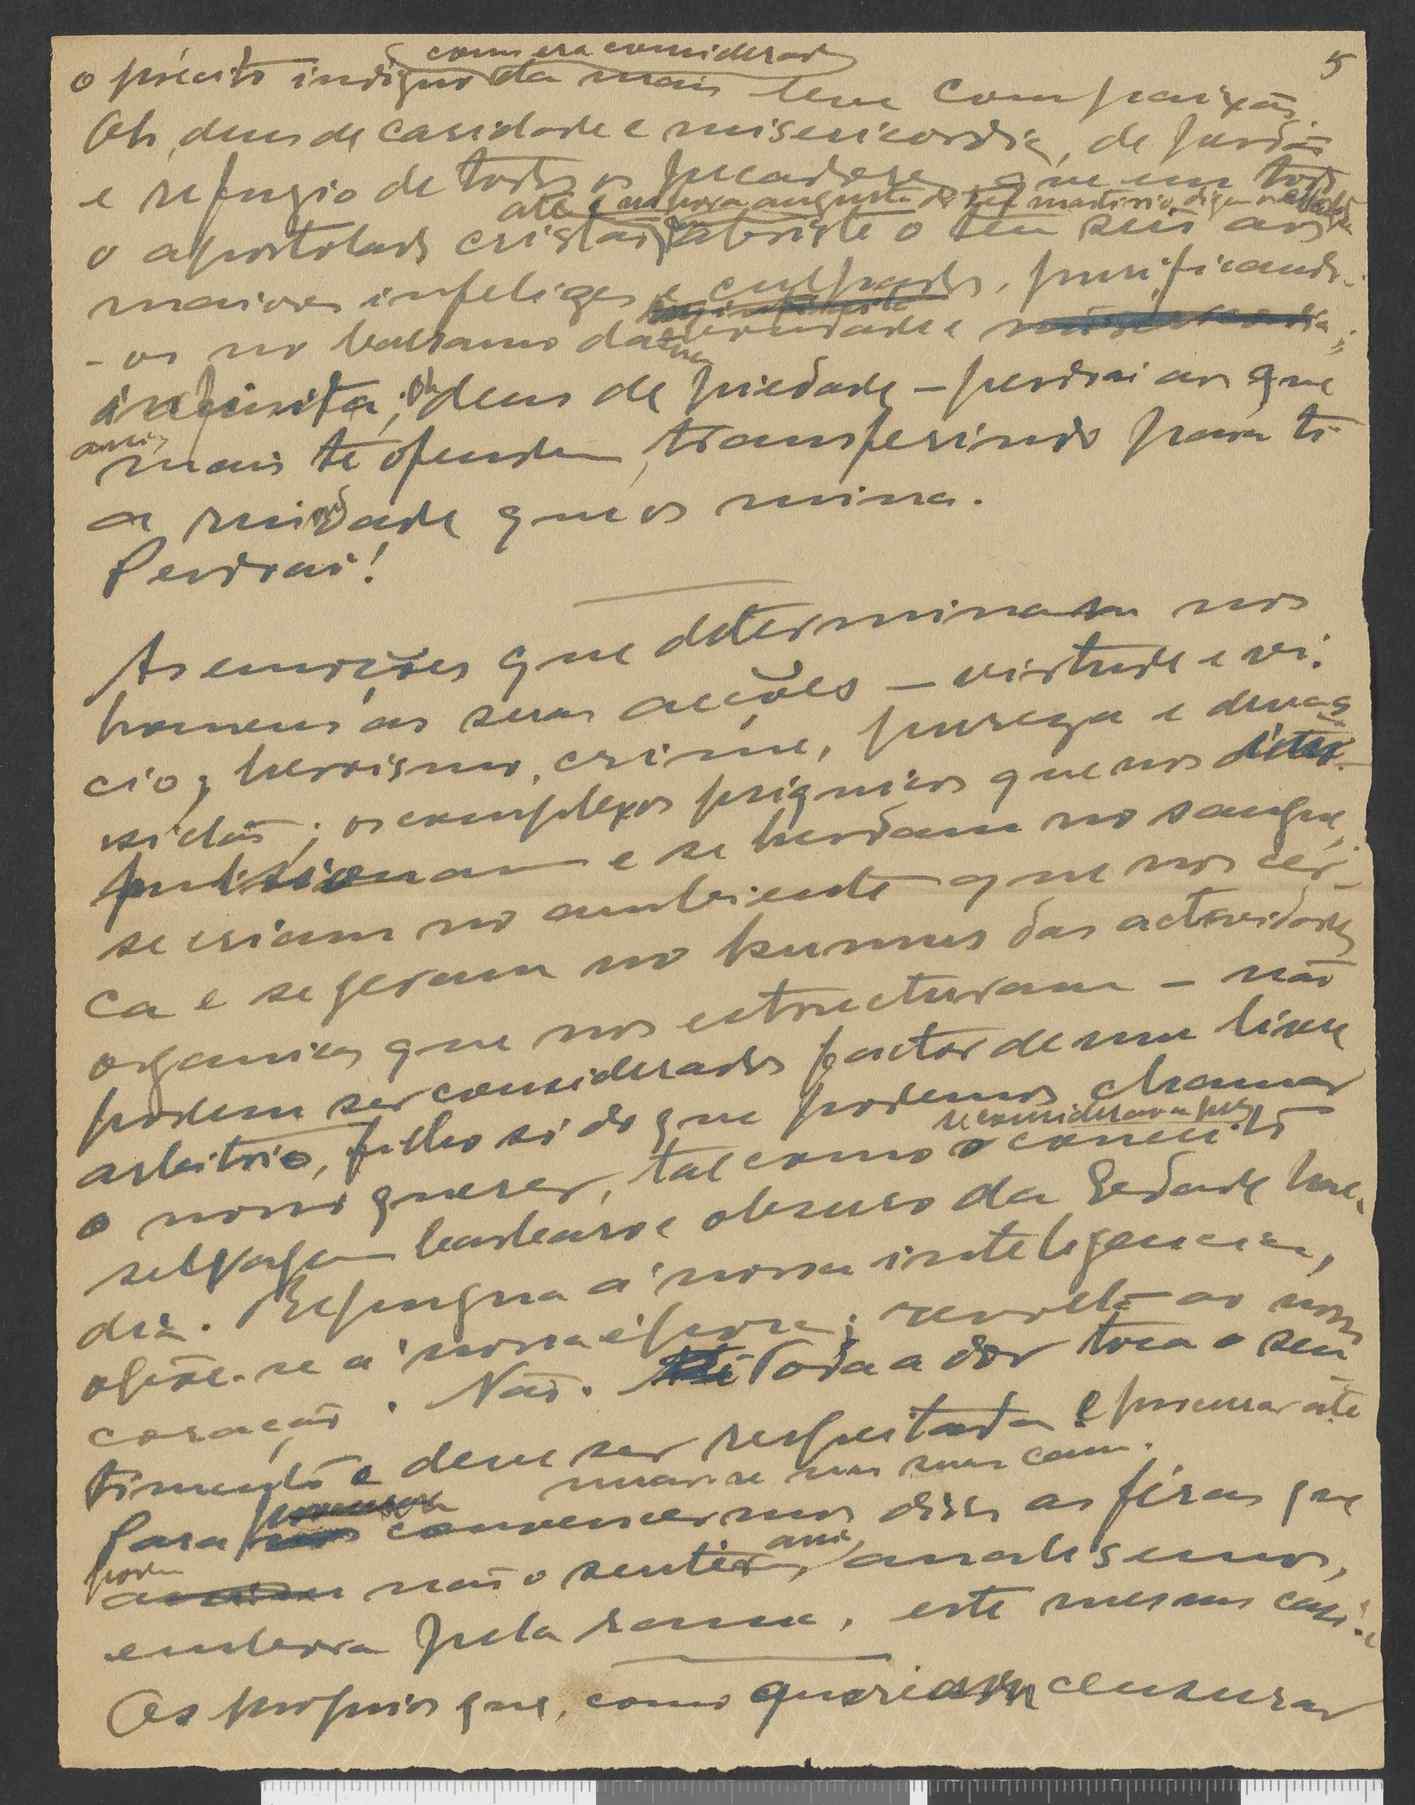 5
como era considerado
o précito indigno da mais leve compaixão.
Oh, deus de caridade e misericordia, de perdão
e refugio de todos os pecadores que em todo
até na hora augusta do teu martirio,
o apostolado cristão abriste o teu seio aos
maiores infelizes e culpados, purificando-
-os no balsamo da tua bondade e
infinita; oh deus de piedade – perdoai aos que
mais te ofendem, transferindo para ti
a ruindade que os mina.
Perdoai!
As emoções que determinam nos
homens as suas acções – virtude e vi-
cio, heroismo, crime, pureza e devas-
sidão; os complexos psiquicos que nos
pulsionam e se herdam no sangue,
se criam no ambiente que nos cer-
ca e se geram no humus das actividades
organicas que nos estructuram – não
podem ser considerados factor de um livre
arbitrio, filho só do que podemos chamar
o nosso querer, tal como o conceito
selvagem barbaro e obscuro da Edade Mé-
dia. Repugna á nossa inteligencia,
opõe-se á nossa época; revolta ao nosso
coração. Não. Toda a dor toca o sen-
timento e deve ser respeitada e procurar ate
nuar-se num sem com.
Para convencermos disso as féras que
não o sentem, analisemos,
embora pela rama, este mesmo caso.
Os proprios que, como queriam censurar